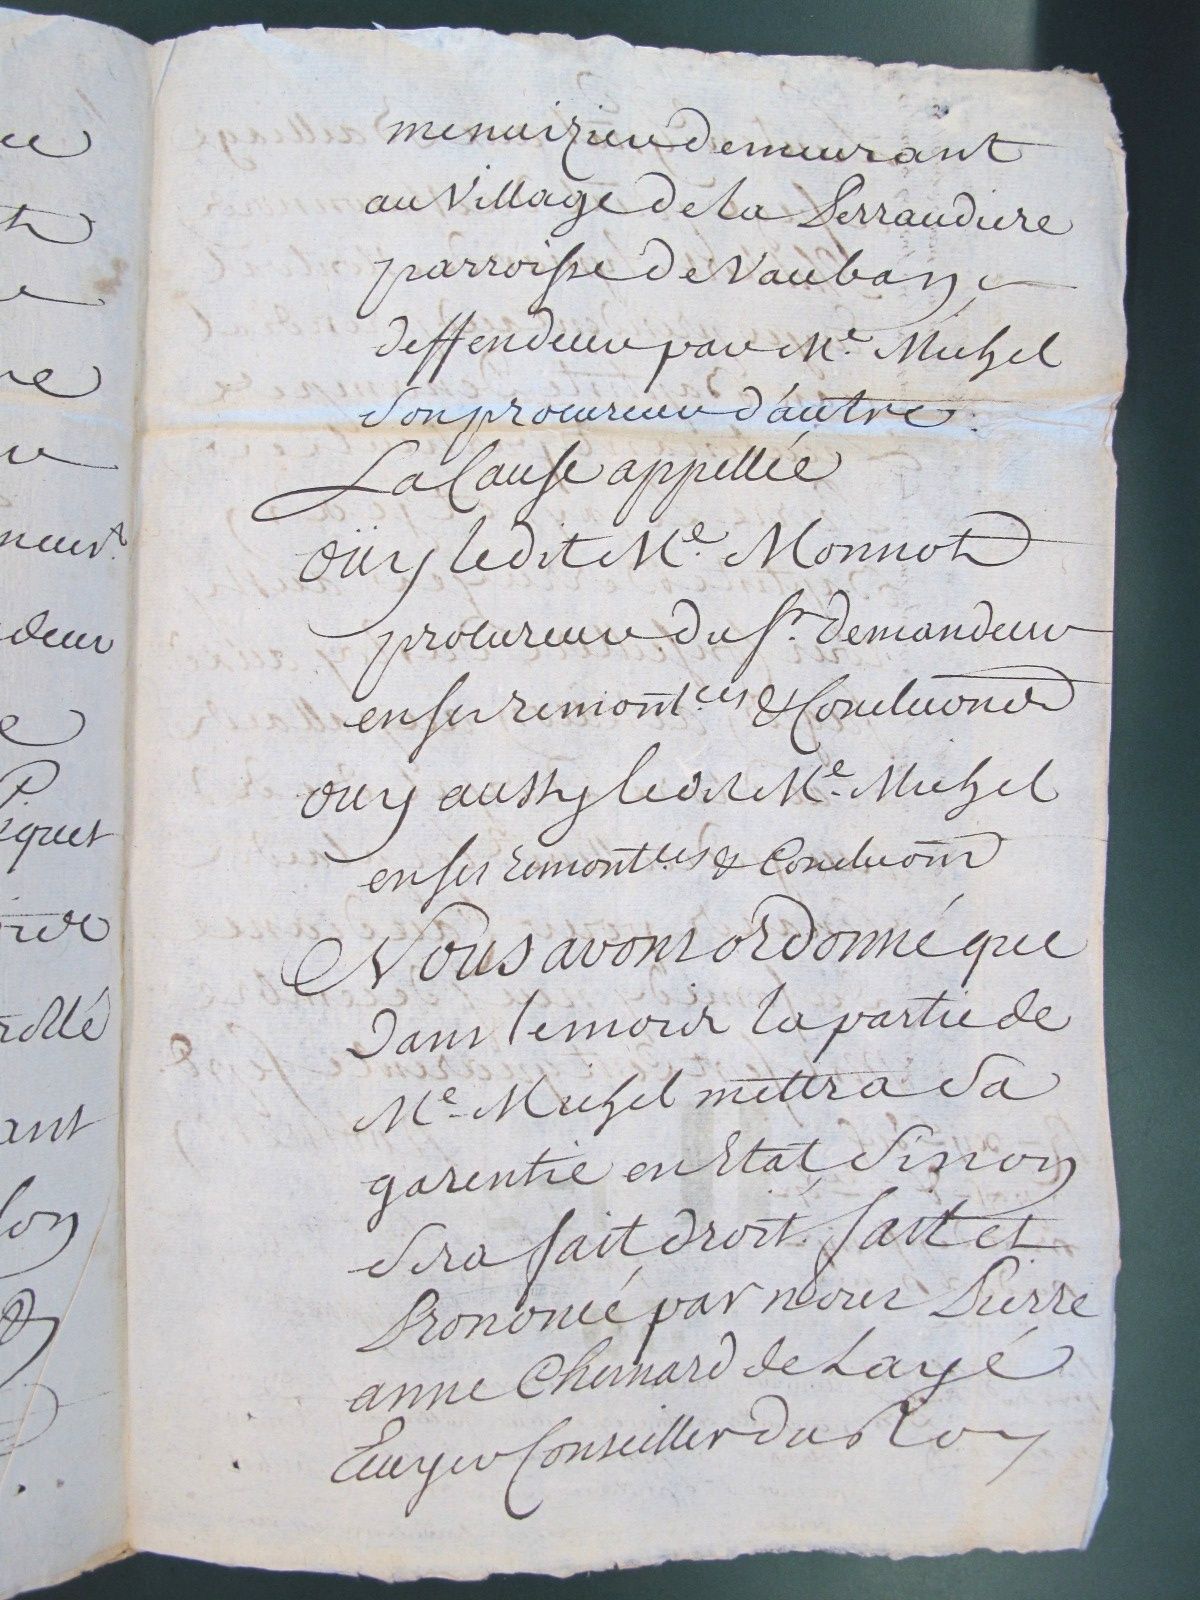 menuizier demeurant
au Village de la Perraudiere
parroisse de Vauban
deffendeur par Me. Michel
son procureur d'autre.
La Cause appellée
oüy ledit Me. Monnot
procureur du sr. demandeur
en ses remontces & Concluons
ouy aussy ledit Me. Michel
en ses remontces & Concluons
Nous avons ordonné que
dans le mois la partie de
Me. Michel mettra sa
garentie en Etat, sinon
sera fait droit. fait et
Prononcé par nous Pierre
anne Chesnard de Layé
Ecuyer Conseiller du Roy
neurt.
deur
Piquet
ant